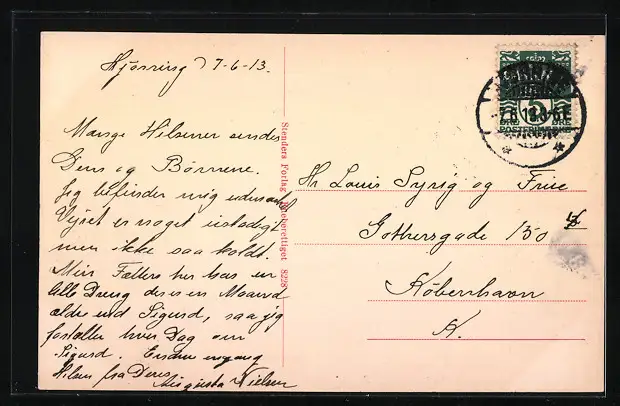 Hjørring 7-6-13.
Mange Hilsener sendes
Dem og Børnene.
Jeg befinder mig udmærket
Vejret er noget ustadigt
men ikke saa koldt.
Min Fætter her har en
lille Dreng der er en Maaned
ældre end Sigurd, saa jeg
fortæller hver Dag om
Sigurd. Endnu engang
Hilsen fra Deres
Augusta Nielsen
Stenders Forlag Eneberettiget 8228
5
ØRE ØRE
POSTFRIM
Hr Louis Syrig og Frue
Gothersgade 150
København
K.